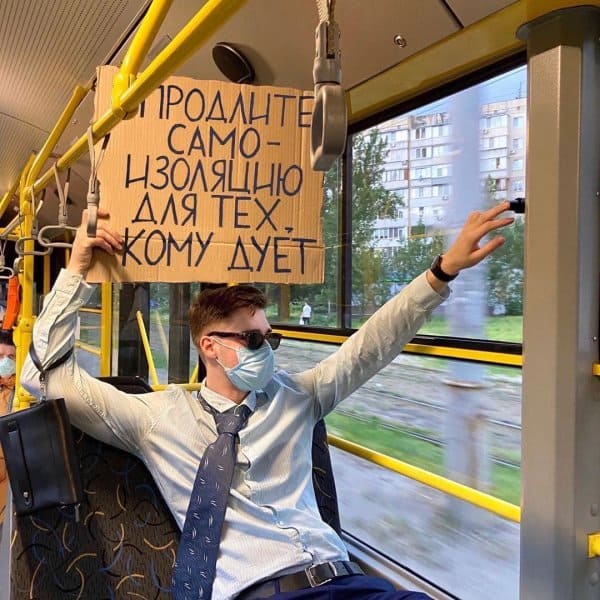 ПРОДЛИТЕ
САМО-
ИЗОЛЯЦИЮ
ДЛЯ ТЕХ,
КОМУ ДУЕТ